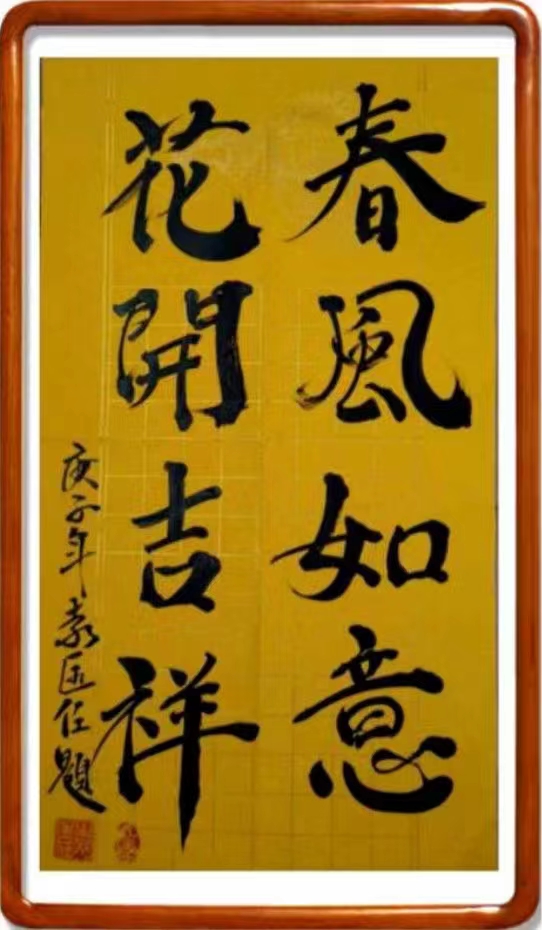 春風如意
花開吉祥
庚子年袁匡任題